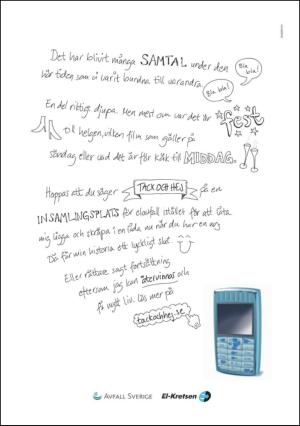 Det har blivit många SAMTAL under den
här tiden som vi varit bundna till varandra.
Bla bla!
Bla bla!
En del riktigt djupa. Men mest om var det är fest
till helgen, vilken film som gäller på
söndag eller vad det är för käk till MIDDAG.
Hoppas att du säger TACK OCH HEJ på en
INSAMLINGSPLATS för elavfall istället för att låta
mig ligga och skräpa i en låda nu när du har en ny.
Då får min historia ett lyckligt slut.
Eller rättare sagt fortsättning
eftersom jag kan återvinnas och
få nytt liv. Läs mer på
tackochhej.se
AVFALL SVERIGE
El-Kretsen